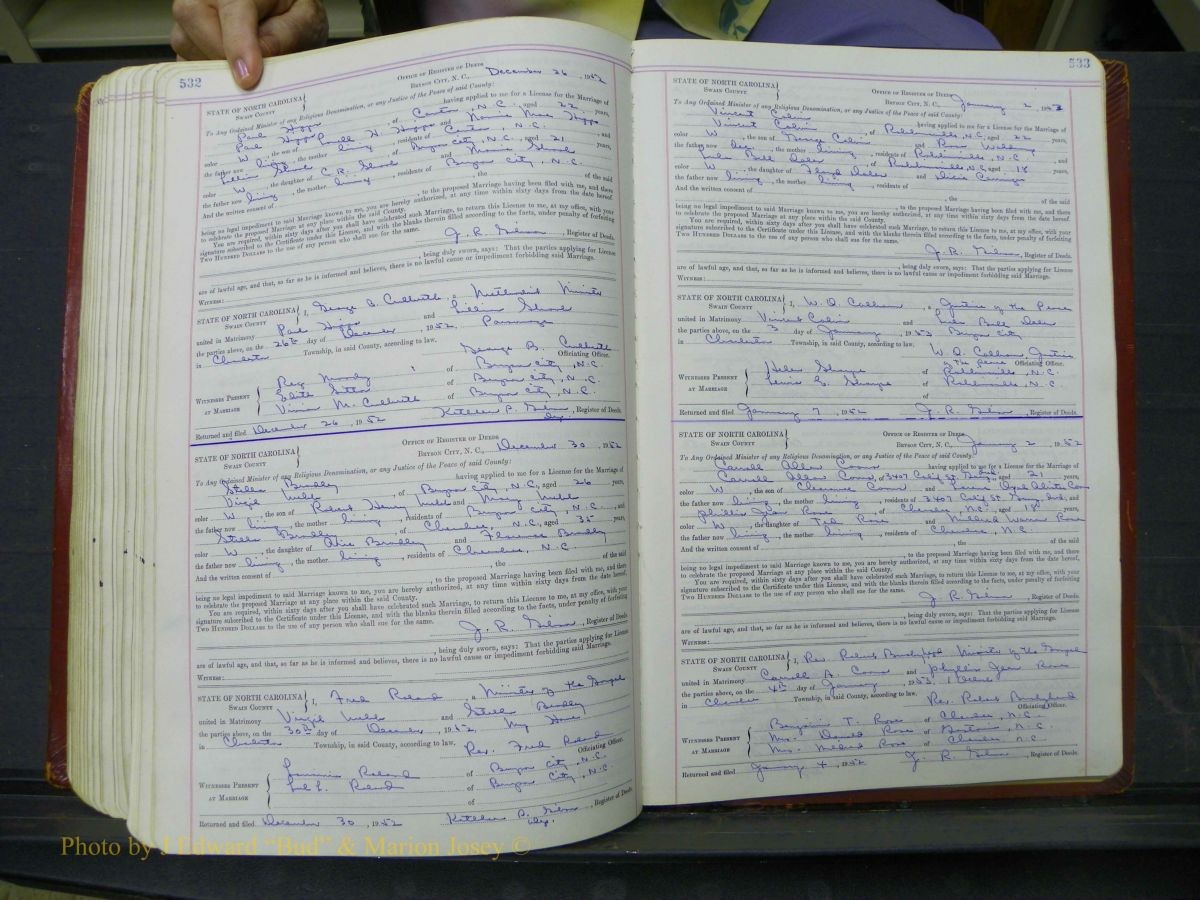 532
OFFICE OF REGISTER OF DEEDS
BRYSON CITY, N. C., December 26, 1952
STATE OF NORTH CAROLINA
SWAIN COUNTY
To Any Ordained Minister of any Religious Denomination, or any Justice of the Peace of said County:
Paul Hipps having applied to me for a License for the Marriage of
Paul Hipps of Canton, N.C., aged 22 years,
color W, the son of and
the father now living, the mother living, residents of Canton, N.C.
of Bryson City, N.C. aged 21 years,
color W, the daughter of C. R. and
the father now living, the mother living, residents of Bryson City, N.C.
And the written consent of the of the said
, to the proposed Marriage having been filed with me, and there
being no legal impediment to said Marriage known to me, you are hereby authorized, at any time within sixty days from the date hereof,
to celebrate the proposed Marriage at any place within the said County.
You are required, within sixty days after you shall have celebrated such Marriage, to return this License to me, at my office, with your
signature subscribed to the Certificate under this License, and with the blanks therein filled according to the facts, under penalty of forfeiting
TWO HUNDRED DOLLARS to the use of any person who shall sue for the same.
J. R. , Register of Deeds.
, being duly sworn, says: That the parties applying for License
are of lawful age, and that, so far as he is informed and believes, there is no lawful cause or impediment forbidding said Marriage.
WITNESS:
STATE OF NORTH CAROLINA
SWAIN COUNTY
I, George B. Culbreth, a Methodist Minister
united in Matrimony Paul Hipps and Lillian
the parties above, on the 26th day of December, 1952, Parsonage
in Charleston Township, in said County, according to law.
George B. Culbreth
Officiating Officer.
WITNESSES PRESENT
AT MARRIAGE
of Bryson City, N.C.
of Bryson City, N.C.
M. Culbreth of Bryson City, N.C.
Returned and filed December 26, 1952 Kathleen P. , Register of Deeds.
OFFICE OF REGISTER OF DEEDS
BRYSON CITY, N. C., December 30, 1952
STATE OF NORTH CAROLINA
SWAIN COUNTY
To Any Ordained Minister of any Religious Denomination, or any Justice of the Peace of said County:
Stella Bradley having applied to me for a License for the Marriage of
Virgil of Bryson City, N.C., aged 26 years,
color W, the son of Robert Henry and Mary
the father now living, the mother living, residents of Bryson City, N.C., and
Stella Bradley of Cherokee, N.C., aged 35 years,
color W, the daughter of Bradley and Florence Bradley
the father now living, the mother living, residents of Cherokee, N.C.
And the written consent of the of the said
, to the proposed Marriage having been filed with me, and there
being no legal impediment to said Marriage known to me, you are hereby authorized, at any time within sixty days from the date hereof,
to celebrate the proposed Marriage at any place within the said County.
You are required, within sixty days after you shall have celebrated such Marriage, to return this License to me, at my office, with your
signature subscribed to the Certificate under this License, and with the blanks therein filled according to the facts, under penalty of forfeiting
TWO HUNDRED DOLLARS to the use of any person who shall sue for the same.
J. R. , Register of Deeds.
, being duly sworn, says: That the parties applying for License
are of lawful age, and that, so far as he is informed and believes, there is no lawful cause or impediment forbidding said Marriage.
WITNESS:
STATE OF NORTH CAROLINA
SWAIN COUNTY
I, Fred Roland, a Minister of the Gospel
united in Matrimony Virgil and Stella Bradley
the parties above, on the 30th day of December, 1952, My Home
in Charleston Township, in said County, according to law.
Rev. Fred Roland
Officiating Officer.
WITNESSES PRESENT
AT MARRIAGE
Roland of Bryson City, N.C.
of Bryson City, N.C.
of
Returned and filed December 30, 1952 Kathleen P. , Register of Deeds.
533
OFFICE OF REGISTER OF DEEDS
BRYSON CITY, N. C., January 2, 1953
STATE OF NORTH CAROLINA
SWAIN COUNTY
To Any Ordained Minister of any Religious Denomination, or any Justice of the Peace of said County:
Vincent having applied to me for a License for the Marriage of
Vincent of Robbinsville, N.C., aged 22 years,
color W, the son of George and
the father now dec., the mother living, residents of Robbinsville, N.C., and
Bell of Robbinsville, N.C., aged 18 years,
color W, the daughter of Floyd and
the father now living, the mother living, residents of
And the written consent of the of the said
, to the proposed Marriage having been filed with me, and there
being no legal impediment to said Marriage known to me, you are hereby authorized, at any time within sixty days from the date hereof,
to celebrate the proposed Marriage at any place within the said County.
You are required, within sixty days after you shall have celebrated such Marriage, to return this License to me, at my office, with your
signature subscribed to the Certificate under this License, and with the blanks therein filled according to the facts, under penalty of forfeiting
TWO HUNDRED DOLLARS to the use of any person who shall sue for the same.
J. R. , Register of Deeds.
, being duly sworn, says: That the parties applying for License
are of lawful age, and that, so far as he is informed and believes, there is no lawful cause or impediment forbidding said Marriage.
WITNESS:
STATE OF NORTH CAROLINA
SWAIN COUNTY
I, W. O. Calhoun, a Justice of the Peace
united in Matrimony Vincent and Bell
the parties above, on the 3 day of January, 1953 Bryson City
in Charleston Township, in said County, according to law.
W. O. Calhoun, Justice
of the Peace Officiating Officer.
WITNESSES PRESENT
AT MARRIAGE
Helen of Robbinsville, N.C.
of Robbinsville, N.C.
of
Returned and filed January 7, 1952 J. R. , Register of Deeds.
OFFICE OF REGISTER OF DEEDS
BRYSON CITY, N. C., January 2, 1952
STATE OF NORTH CAROLINA
SWAIN COUNTY
To Any Ordained Minister of any Religious Denomination, or any Justice of the Peace of said County:
Carroll Allen having applied to me for a License for the Marriage of
Carroll Allen , of 3407 St. Gary, Ind., aged 21 years,
color W, the son of Clarence and
the father now living, the mother living, residents of 3407 St. Gary, Ind., and
Phyllis Jean Rose of Cherokee, N.C. aged 18 years,
color W, the daughter of Rose and Mildred Rose
the father now living, the mother living, residents of Cherokee, N.C.
And the written consent of the of the said
, to the proposed Marriage having been filed with me, and there
being no legal impediment to said Marriage known to me, you are hereby authorized, at any time within sixty days from the date hereof,
to celebrate the proposed Marriage at any place within the said County.
You are required, within sixty days after you shall have celebrated such Marriage, to return this License to me, at my office, with your
signature subscribed to the Certificate under this License, and with the blanks therein filled according to the facts, under penalty of forfeiting
TWO HUNDRED DOLLARS to the use of any person who shall sue for the same.
J. R. , Register of Deeds.
, being duly sworn, says: That the parties applying for License
are of lawful age, and that, so far as he is informed and believes, there is no lawful cause or impediment forbidding said Marriage.
WITNESS:
STATE OF NORTH CAROLINA
SWAIN COUNTY
I, Rev. , Minister of the Gospel
united in Matrimony Carroll A. and Phyllis Jean Rose
the parties above, on the 4th day of January, 1953,
in Cherokee Township, in said County, according to law.
Rev.
Officiating Officer.
WITNESSES PRESENT
AT MARRIAGE
Benjamin T. Rose of Cherokee, N.C.
Mrs. Donald Rose of N.C.
Mrs. Mildred Rose of Cherokee, N.C.
Returned and filed January 4, 1952 J. R. , Register of Deeds.
Photo by J Edward "Bud" & Marion Josey ©